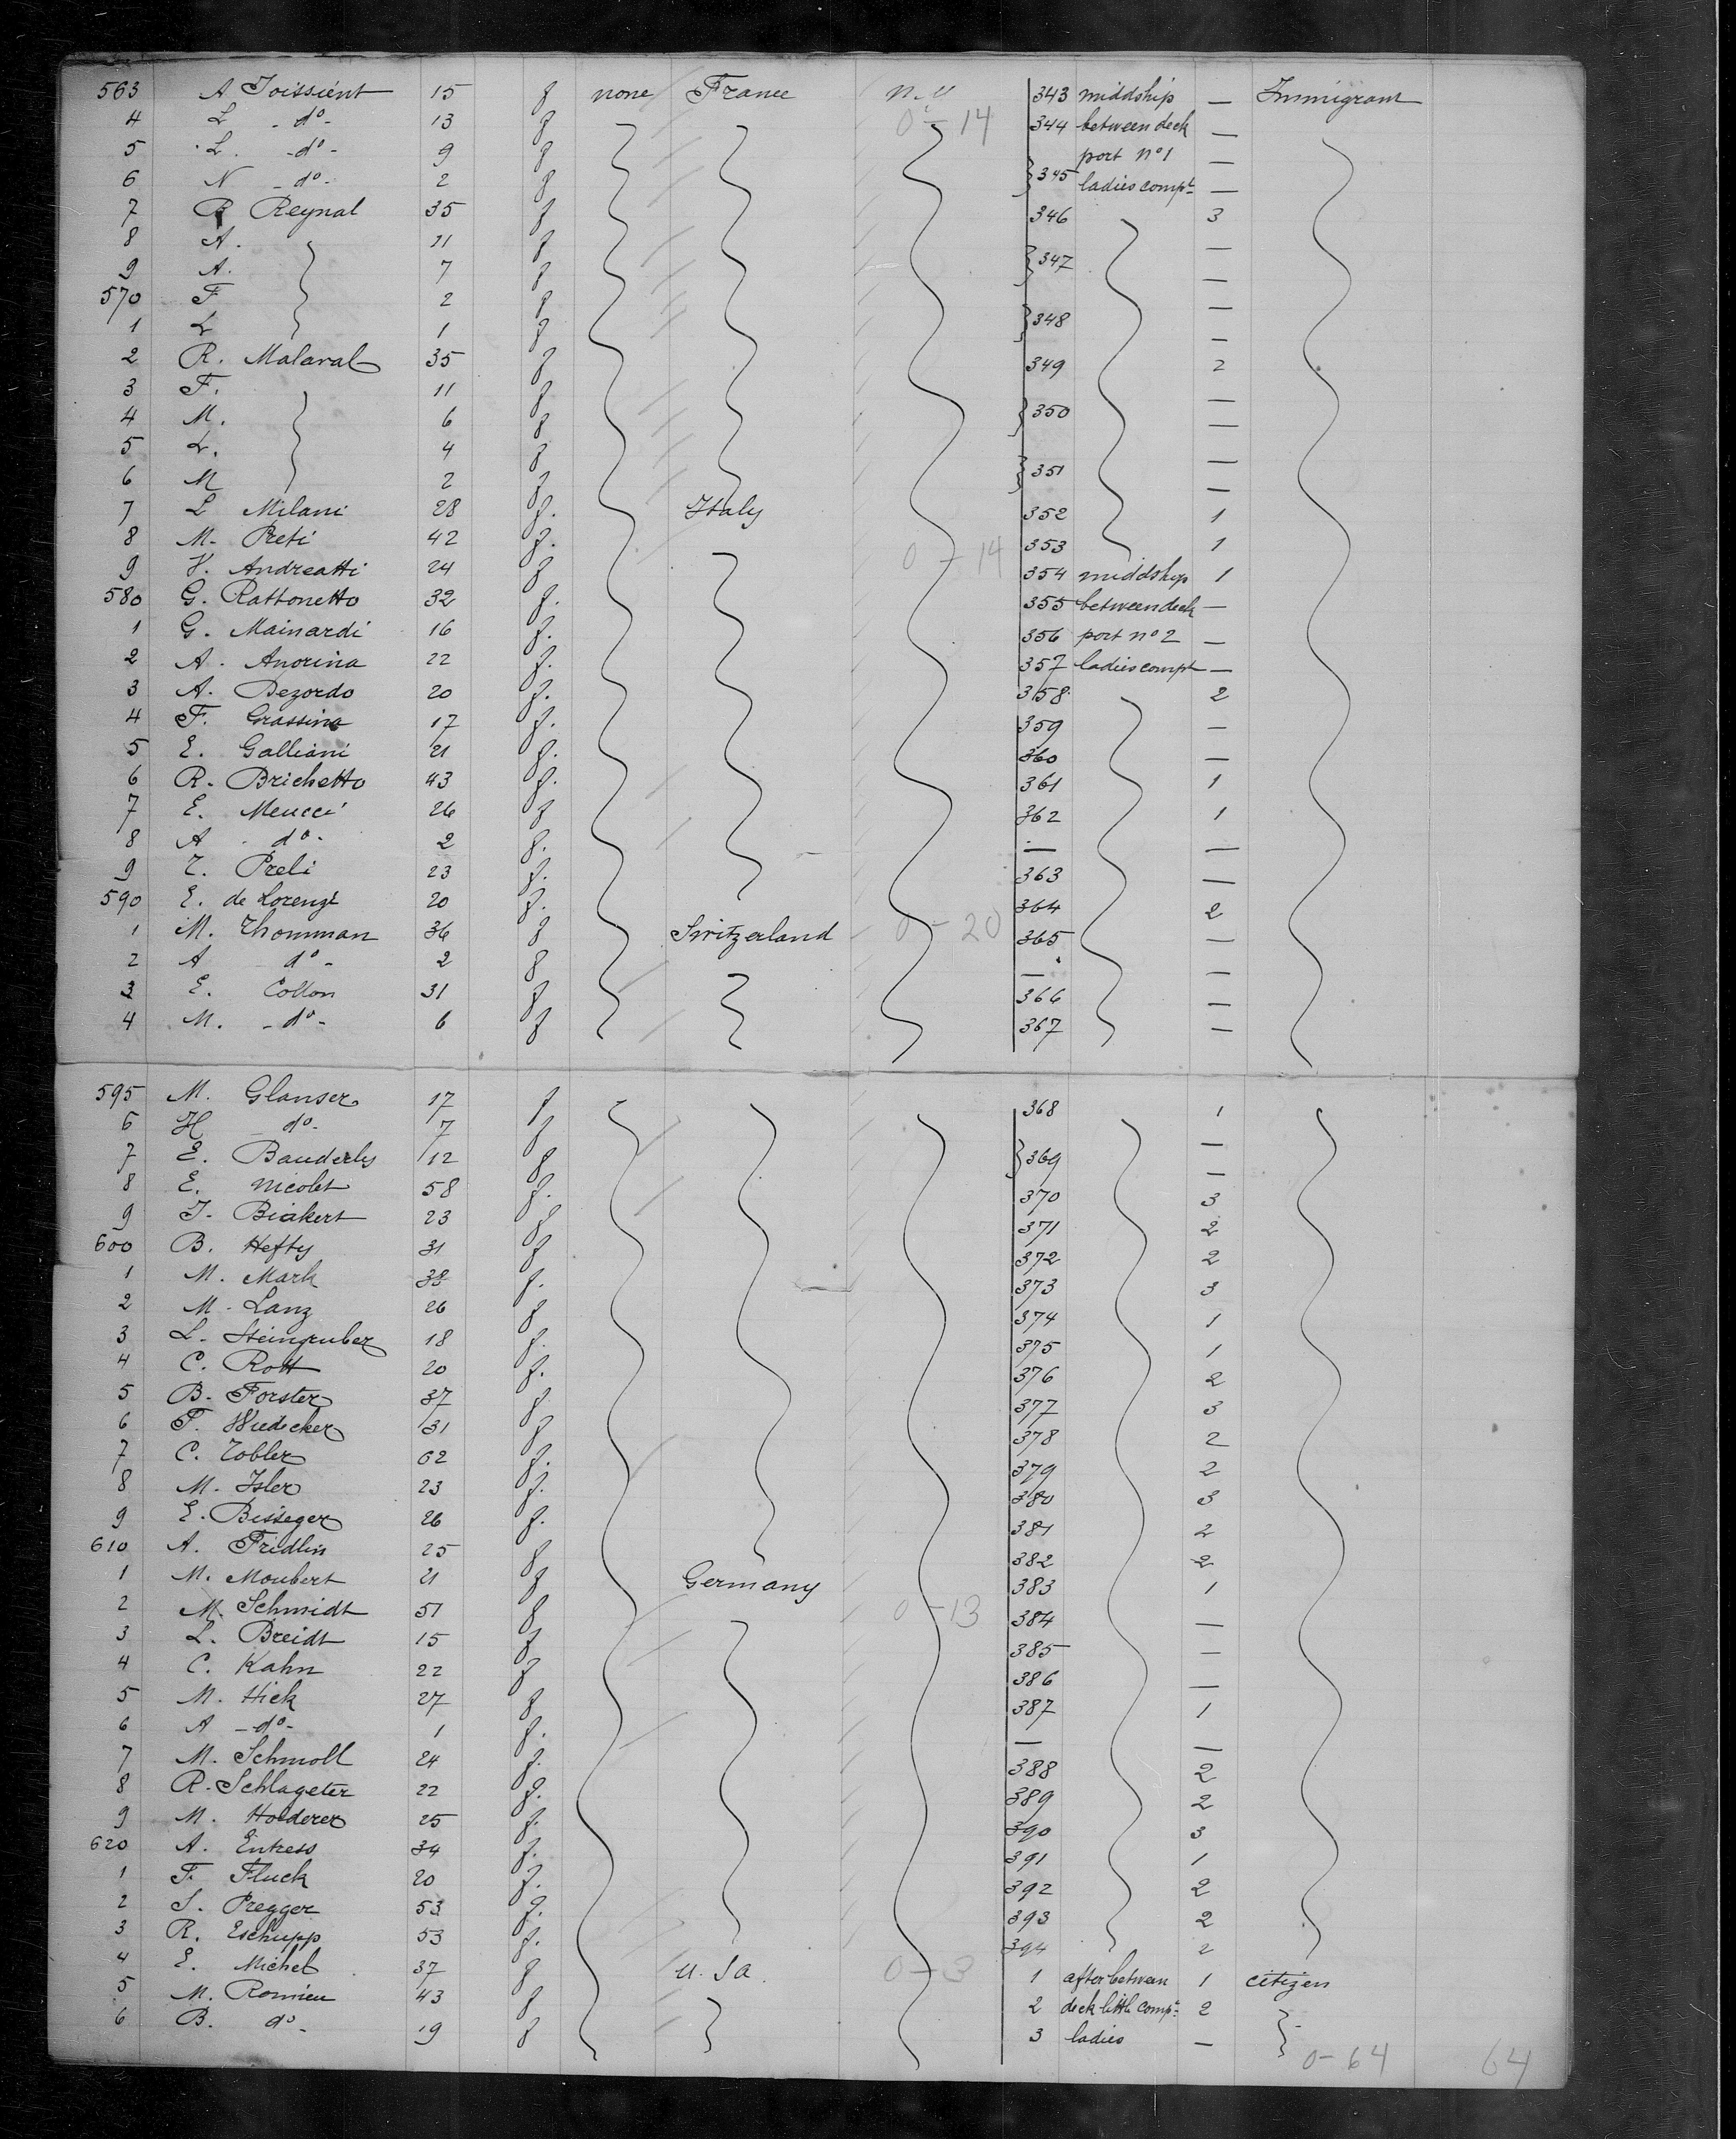 563 A Toissient 15 f none France N.Y 343 middship — Immigrant
4 L - do - 13 f 0 - 14 344 between deck —
5 L. - do - 9 f port no 1 —
6 N - do - 2 f 345 ladies compt —
7 R Reynal 35 f 346 3
8 A. 11 f 347 —
9 A. 7 f —
570 F 2 f 348 —
1 L 1 f —
2 R. Malaval 35 f 349 2
3 F. 11 f 350 —
4 M. 6 f —
5 L. 4 f 351 —
6 M 2 f —
7 L Milani 28 f. Italy 352 1
8 M. Preti 42 f. 353 1
9 V. Andreatti 24 f 0 - 14 354 middship 1
580 G. Rattonetto 32 f. 355 between deck —
1 G. Mainardi 16 f. 356 port no 2 —
2 A. Anorina 22 f. 357 ladies compt —
3 A. Dezordo 20 f. 358 2
4 F. Grassino 17 f. 359 —
5 E. Galliani 21 f. 360 —
6 R. Brichetto 43 f. 361 1
7 E. Meucci 26 f 362 1
8 A do - 2 f. — —
9 T. Preli 23 f. 363 —
590 E. de Lorenzi 20 f. 364 2
1 M. Thomman 36 f Switzerland 0 - 20 365 —
2 A do - 2 f — —
3 E. Collon 31 f 366 —
4 M. - do - 6 f 367 —
595 M. Glanser 17 f 368 1
6 H do - 7 f 369 —
7 E. Bauderly 12 f —
8 E. Nicolet 58 f. 370 3
9 J. Biakert 23 f 371 2
600 B. Hefty 31 f 372 2
1 M. Mark 38 f. 373 3
2 M. Lanz 26 f 374 1
3 L. Steingruber 18 f. 375 1
4 C. Rott 20 f. 376 2
5 B. Forster 37 f 377 3
6 F. Wiedecker 31 f 378 2
7 C. Tobler 62 f. 379 2
8 M. Isler 23 f. 380 3
9 E. Bisseger 26 f. 381 2
610 A. Fridlin 25 f 382 2
1 M. Moubert 21 f Germany 383 1
2 M. Schmidt 51 f 0 - 13 384 —
3 L. Breidt 15 f 385 —
4 C. Kahn 22 f 386 —
5 M. Hick 27 f 387 1
6 A - do - 1 f. — —
7 M. Schmoll 24 f. 388 2
8 R. Schlageter 22 f. 389 2
9 M. Holderer 25 f. 390 3
620 A. Entress 34 f. 391 1
1 F. Fluck 20 f. 392 2
2 S. Pregger 53 f. 393 2
3 R. Eschupp 53 f. 394 2
4 E. Michel 37 f U.Sa. 0 - 3 1 after between 1 citizen
5 M. Romieu 43 f 2 deck little compt 2
6 B. do - 19 f 3 ladies —
0 - 64 64